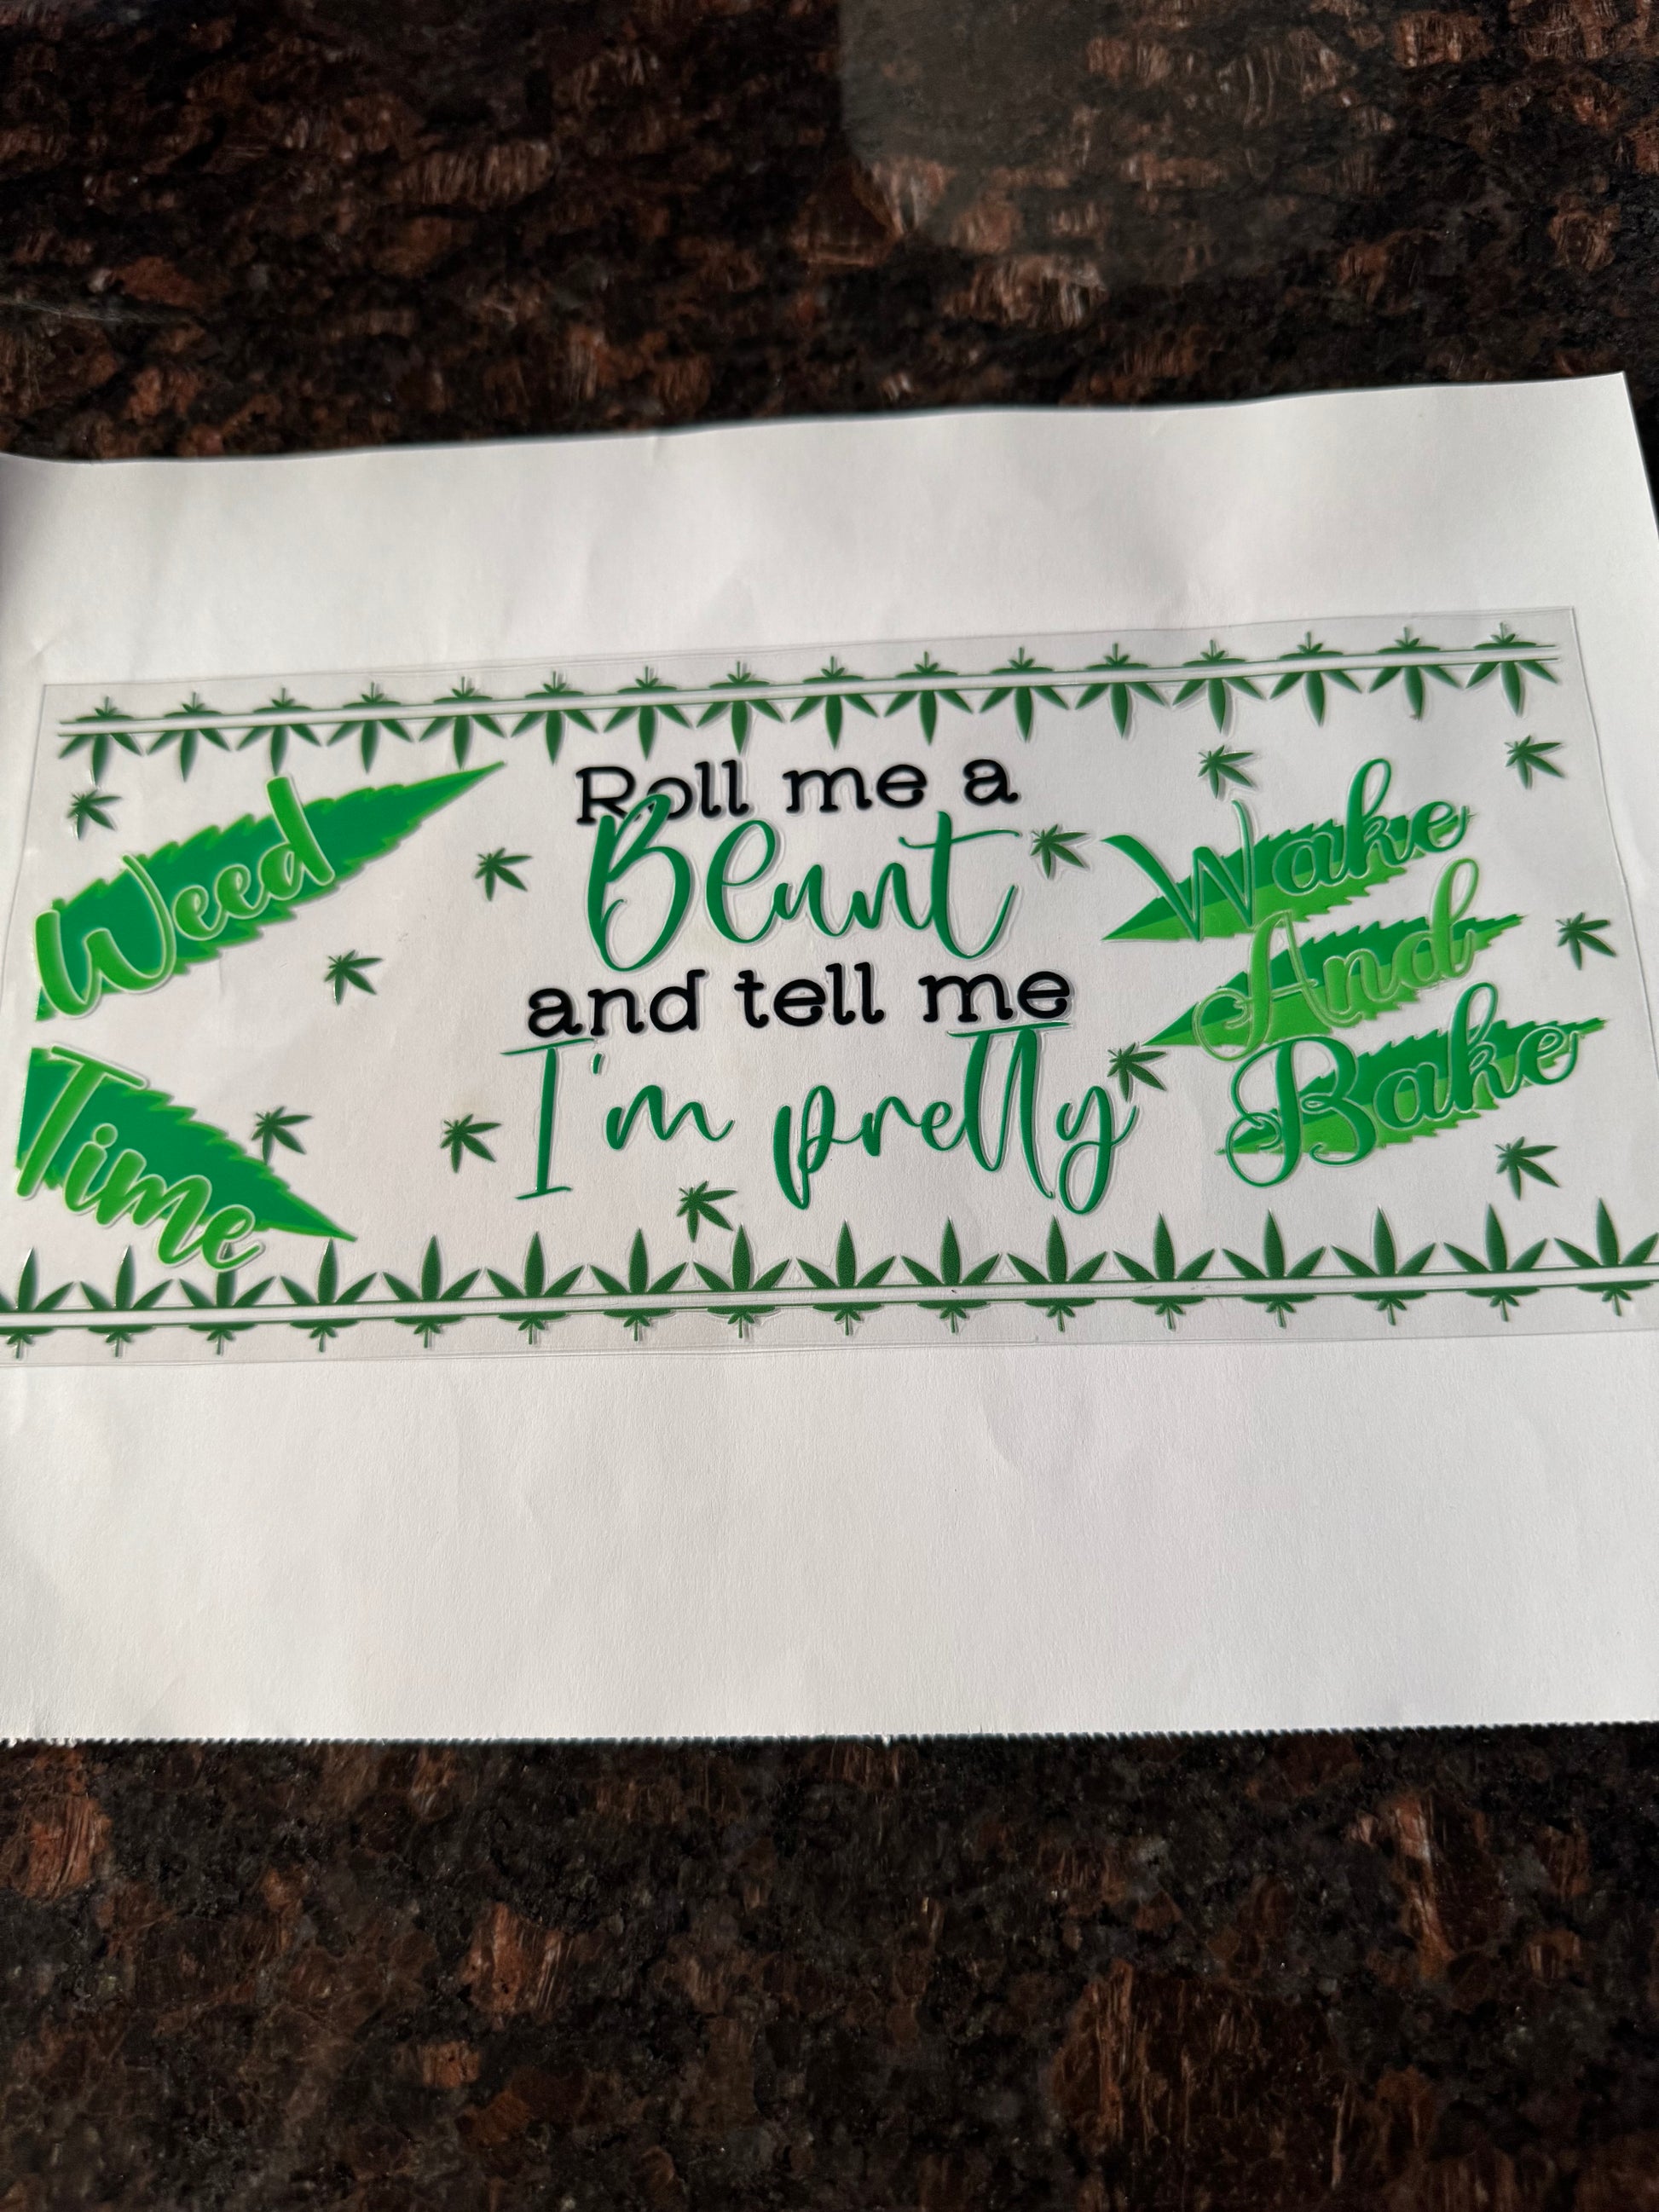 Weed
Time
Roll me a
Blunt
and tell me
I'm pretty
Wake
And
Bake